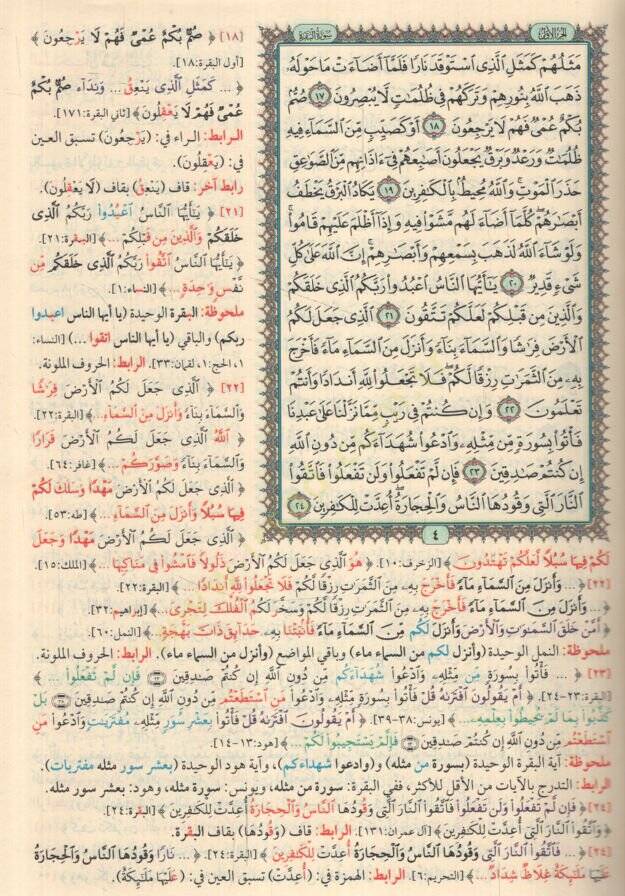 الجزء الأول
سورة البقرة
مَثَلُهُمْ كَمَثَلِ الَّذِى اسْتَوْقَدَ نَارًا فَلَمَّا أَضَاءَتْ مَا حَوْلَهُ
ذَهَبَ اللَّهُ بِنُورِهِمْ وَتَرَكَهُمْ فِى ظُلُمَٰتٍ لَّا يُبْصِرُونَ ١٧ صُمٌّ
بُكْمٌ عُمْىٌ فَهُمْ لَا يَرْجِعُونَ ١٨ أَوْ كَصَيِّبٍ مِّنَ السَّمَاءِ فِيهِ
ظُلُمَٰتٌ وَرَعْدٌ وَبَرْقٌ يَجْعَلُونَ أَصَٰبِعَهُمْ فِى ءَاذَانِهِم مِّنَ الصَّوَٰعِقِ
حَذَرَ الْمَوْتِ وَاللَّهُ مُحِيطٌ بِالْكَٰفِرِينَ ١٩ يَكَادُ الْبَرْقُ يَخْطَفُ
أَبْصَٰرَهُمْ كُلَّمَا أَضَاءَ لَهُم مَّشَوْا فِيهِ وَإِذَا أَظْلَمَ عَلَيْهِمْ قَامُوا
وَلَوْ شَاءَ اللَّهُ لَذَهَبَ بِسَمْعِهِمْ وَأَبْصَٰرِهِمْ إِنَّ اللَّهَ عَلَىٰ كُلِّ
شَىْءٍ قَدِيرٌ ٢٠ يَٰأَيُّهَا النَّاسُ اعْبُدُوا رَبَّكُمُ الَّذِى خَلَقَكُمْ
وَالَّذِينَ مِن قَبْلِكُمْ لَعَلَّكُمْ تَتَّقُونَ ٢١ الَّذِى جَعَلَ لَكُمُ
الْأَرْضَ فِرَٰشًا وَالسَّمَاءَ بِنَاءً وَأَنزَلَ مِنَ السَّمَاءِ مَاءً فَأَخْرَجَ
بِهِ مِنَ الثَّمَرَٰتِ رِزْقًا لَّكُمْ فَلَا تَجْعَلُوا لِلَّهِ أَندَادًا وَأَنتُمْ
تَعْلَمُونَ ٢٢ وَإِن كُنتُمْ فِى رَيْبٍ مِّمَّا نَزَّلْنَا عَلَىٰ عَبْدِنَا
فَأْتُوا بِسُورَةٍ مِّن مِّثْلِهِ وَادْعُوا شُهَدَاءَكُم مِّن دُونِ اللَّهِ
إِن كُنتُمْ صَٰدِقِينَ ٢٣ فَإِن لَّمْ تَفْعَلُوا وَلَن تَفْعَلُوا فَاتَّقُوا
النَّارَ الَّتِى وَقُودُهَا النَّاسُ وَالْحِجَارَةُ أُعِدَّتْ لِلْكَٰفِرِينَ ٢٤
٤
[١٨] ﴿ صُمٌّ بُكْمٌ عُمْىٌ فَهُمْ لَا يَرْجِعُونَ ﴾
[أول البقرة:١٨].
﴿ ... كَمَثَلِ الَّذِى يَنْعِقُ ... وَنِدَاءً صُمٌّ بُكْمٌ
عُمْىٌ فَهُمْ لَا يَعْقِلُونَ﴾ [ثاني البقرة:١٧١].
الرابط: الراء في: (يَرْجِعُونَ) تسبق العين
في: (يَعْقِلُونَ).
رابط آخر: قاف (يَنْعِقُ) بقاف (لَا يَعْقِلُونَ).
[٢١] ﴿ يَٰأَيُّهَا النَّاسُ اعْبُدُوا رَبَّكُمُ الَّذِى
خَلَقَكُمْ وَالَّذِينَ مِن قَبْلِكُمْ ...﴾ [البقرة:٢١].
﴿ يَٰأَيُّهَا النَّاسُ اتَّقُوا رَبَّكُمُ الَّذِى خَلَقَكُم مِّن
نَّفْسٍ وَٰحِدَةٍ ...﴾ [النساء:١].
ملحوظة: البقرة الوحيدة (يا أيها الناس اعبدوا
ربكم) والباقي (يا أيها الناس اتقوا ...) [النساء:
١، الحج:١، لقمان:٣٣]. الرابط: الحروف الملونة.
[٢٢] ﴿ الَّذِى جَعَلَ لَكُمُ الْأَرْضَ فِرَٰشًا
وَالسَّمَاءَ بِنَاءً وَأَنزَلَ مِنَ السَّمَاءِ ...﴾ [البقرة:٢٢].
﴿ اللَّهُ الَّذِى جَعَلَ لَكُمُ الْأَرْضَ قَرَارًا
وَالسَّمَاءَ بِنَاءً وَصَوَّرَكُمْ ...﴾ [غافر:٦٤].
﴿ الَّذِى جَعَلَ لَكُمُ الْأَرْضَ مَهْدًا وَسَلَكَ لَكُمْ
فِيهَا سُبُلًا وَأَنزَلَ مِنَ السَّمَاءِ ...﴾ [طه:٥٣].
﴿ الَّذِى جَعَلَ لَكُمُ الْأَرْضَ مَهْدًا وَجَعَلَ
لَكُمْ فِيهَا سُبُلًا لَّعَلَّكُمْ تَهْتَدُونَ ﴾ [الزخرف:١٠]. ﴿ هُوَ الَّذِى جَعَلَ لَكُمُ الْأَرْضَ ذَلُولًا فَامْشُوا فِى مَنَاكِبِهَا ...﴾ [الملك:١٥].
[٢٢] ﴿ ... وَأَنزَلَ مِنَ السَّمَاءِ مَاءً فَأَخْرَجَ بِهِ مِنَ الثَّمَرَٰتِ رِزْقًا لَّكُمْ فَلَا تَجْعَلُوا لِلَّهِ أَندَادًا ...﴾ [البقرة:٢٢].
﴿ ... وَأَنزَلَ مِنَ السَّمَاءِ مَاءً فَأَخْرَجَ بِهِ مِنَ الثَّمَرَٰتِ رِزْقًا لَّكُمْ وَسَخَّرَ لَكُمُ الْفُلْكَ لِتَجْرِىَ ...﴾ [إبراهيم:٣٢].
﴿ أَمَّنْ خَلَقَ السَّمَٰوَٰتِ وَالْأَرْضَ وَأَنزَلَ لَكُم مِّنَ السَّمَاءِ مَاءً فَأَنبَتْنَا بِهِ حَدَائِقَ ذَاتَ بَهْجَةٍ ...﴾ [النمل:٦٠].
ملحوظة: النمل الوحيدة (وأنزل لكم من السماء ماء) وباقي المواضع (وأنزل من السماء ماء). الرابط: الحروف الملونة.
[٢٣] ﴿ ... فَأْتُوا بِسُورَةٍ مِّن مِّثْلِهِ وَادْعُوا شُهَدَاءَكُم مِّن دُونِ اللَّهِ إِن كُنتُمْ صَٰدِقِينَ ٢٣ فَإِن لَّمْ تَفْعَلُوا ...﴾
[البقرة:٢٣-٢٤]. ﴿ أَمْ يَقُولُونَ افْتَرَىٰهُ قُلْ فَأْتُوا بِسُورَةٍ مِّثْلِهِ وَادْعُوا مَنِ اسْتَطَعْتُم مِّن دُونِ اللَّهِ إِن كُنتُمْ صَٰدِقِينَ ٣٨ بَلْ
كَذَّبُوا بِمَا لَمْ يُحِيطُوا بِعِلْمِهِ ...﴾ [يونس:٣٨-٣٩]. ﴿ أَمْ يَقُولُونَ افْتَرَىٰهُ قُلْ فَأْتُوا بِعَشْرِ سُوَرٍ مِّثْلِهِ مُفْتَرَيَٰتٍ وَادْعُوا مَنِ
اسْتَطَعْتُم مِّن دُونِ اللَّهِ إِن كُنتُمْ صَٰدِقِينَ ١٣ فَإِلَّمْ يَسْتَجِيبُوا لَكُمْ ...﴾ [هود:١٣-١٤].
ملحوظة: آية البقرة الوحيدة (بسورة من مثله) و(وادعوا شهداءكم)، وآية هود الوحيدة (بعشر سور مثله مفتريات).
الرابط: التدرج بالآيات من الأقل للأكثر، ففي البقرة: سورة من مثله، ويونس: سورة مثله، وهود: بعشر سور مثله.
[٢٤] ﴿ فَإِن لَّمْ تَفْعَلُوا وَلَن تَفْعَلُوا فَاتَّقُوا النَّارَ الَّتِى وَقُودُهَا النَّاسُ وَالْحِجَارَةُ أُعِدَّتْ لِلْكَٰفِرِينَ ﴾ [البقرة:٢٤].
﴿ وَاتَّقُوا النَّارَ الَّتِى أُعِدَّتْ لِلْكَٰفِرِينَ ﴾ [آل عمران:١٣١]. الرابط: قاف (وَقُودُهَا) بقاف البقرة.
[٢٤] ﴿ ... فَاتَّقُوا النَّارَ الَّتِى وَقُودُهَا النَّاسُ وَالْحِجَارَةُ أُعِدَّتْ لِلْكَٰفِرِينَ ﴾ [البقرة:٢٤]. ﴿ ... نَارًا وَقُودُهَا النَّاسُ وَالْحِجَارَةُ
عَلَيْهَا مَلَٰئِكَةٌ غِلَاظٌ شِدَادٌ ...﴾ [التحريم:٦]. الرابط: الهمزة في: (أُعِدَّتْ) تسبق العين في: (عَلَيْهَا مَلَٰئِكَةٌ).